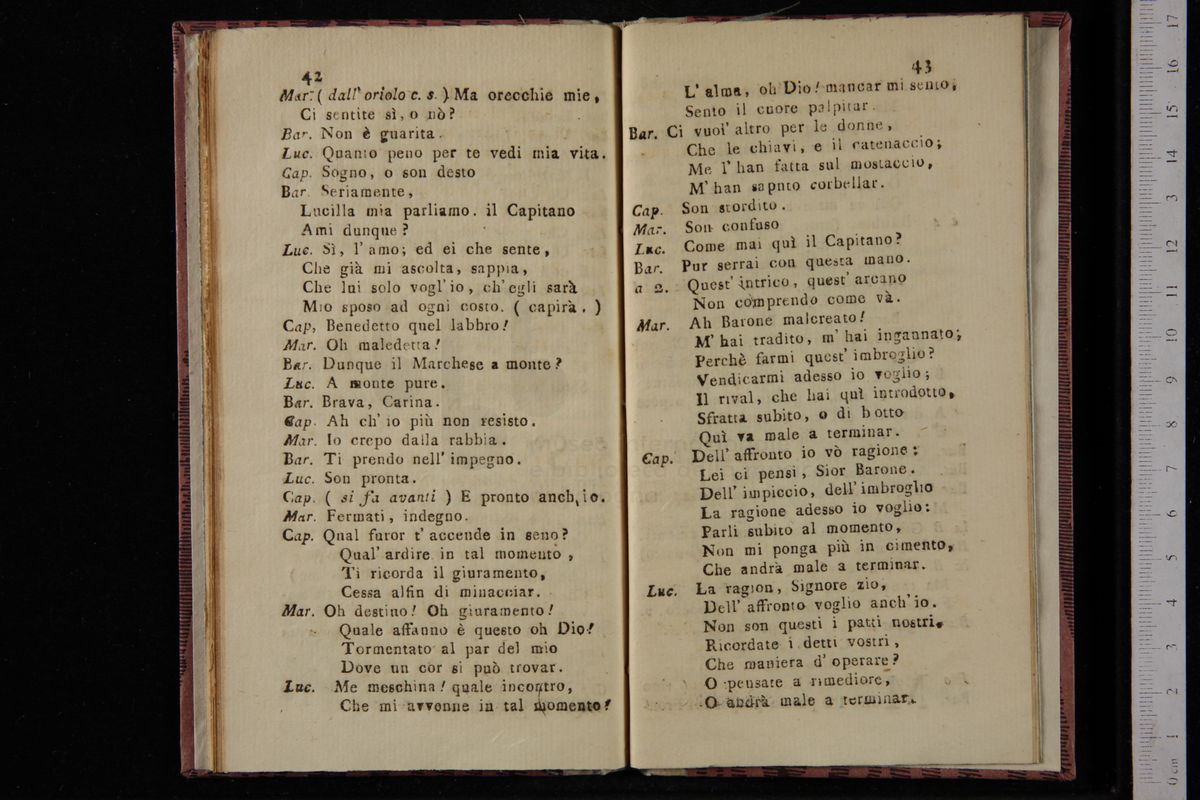 42
Mar. ( dall' oriolo c. s. ) Ma orecchie mie,
Ci sentite sì, o nò?
Bar. Non è guarita.
Luc. Quanto peno per te vedi mia vita.
Cap. Sogno, o son desto
Bar. Seriamente,
Lucilla mia parliamo. il Capitano
Ami dunque?
Luc. Sì, l'amo; ed ei che sente,
Che già mi ascolta, sappia,
Che lui solo vogl'io, ch'egli sarà
Mio sposo ad ogni costo. ( capirà. )
Cap, Benedetto quel labbro!
Mar. Oh maledetta!
Bar. Dunque il Marchese a monte?
Luc. A monte pure.
Bar. Brava, Carina.
Cap. Ah ch' io più non resisto.
Mar. Io crepo dalla rabbia.
Bar. Ti prendo nell' impegno.
Luc. Son pronta.
Cap. ( si fa avanti ) E pronto anch' io.
Mar. Fermati, indegno.
Cap. Qual furor t' accende in seno?
Qual' ardire in tal momento,
Ti ricorda il giuramento,
Cessa alfin di minacciar.
Mar. Oh destino! Oh giuramento!
Quale affanno è questo oh Dio!
Tormentato al par del mio
Dove un cor si può trovar.
Luc. Me meschina! quale incontro,
Che mi avvonne in tal momento!
43
L' alma, oh Dio! mancar mi sento,
Sento il cuore palpitar.
Bar. Ci vuol' altro per le donne,
Che le chiavi, e il catenaccio;
Me l' han fatta sul mostaccio,
M' han sapnto corbellar.
Cap. Son stordito.
Mar. Son confuso
Luc. Come mai quì il Capitano?
Bar. Pur serrai con questa mano.
a 2. Quest' intrico, quest' arcano
Non comprendo come và.
Mar. Ah Barone malcreato!
M' hai tradito, m' hai ingannato;
Perchè farmi quest' imbroglio?
Vendicarmi adesso io voglio;
Il rival, che hai quì introdotto,
Sfratta subito, o di botto
Quì va male a terminar.
Cap. Dell' affronto io vò ragione:
Lei ci pensi, Sior Barone.
Dell' impiccio, dell' imbroglio
La ragione adesso io voglio:
Parli subito al momento,
Non mi ponga più in cimento,
Che andrà male a terminar.
Luc. La ragion, Signore zio,
Dell' affronto voglio anch' io.
Non son questi i patti nostri,
Ricordate i detti vostri,
Che maniera d' operare?
O pensate a rimediore,
O andrà male a terminar.